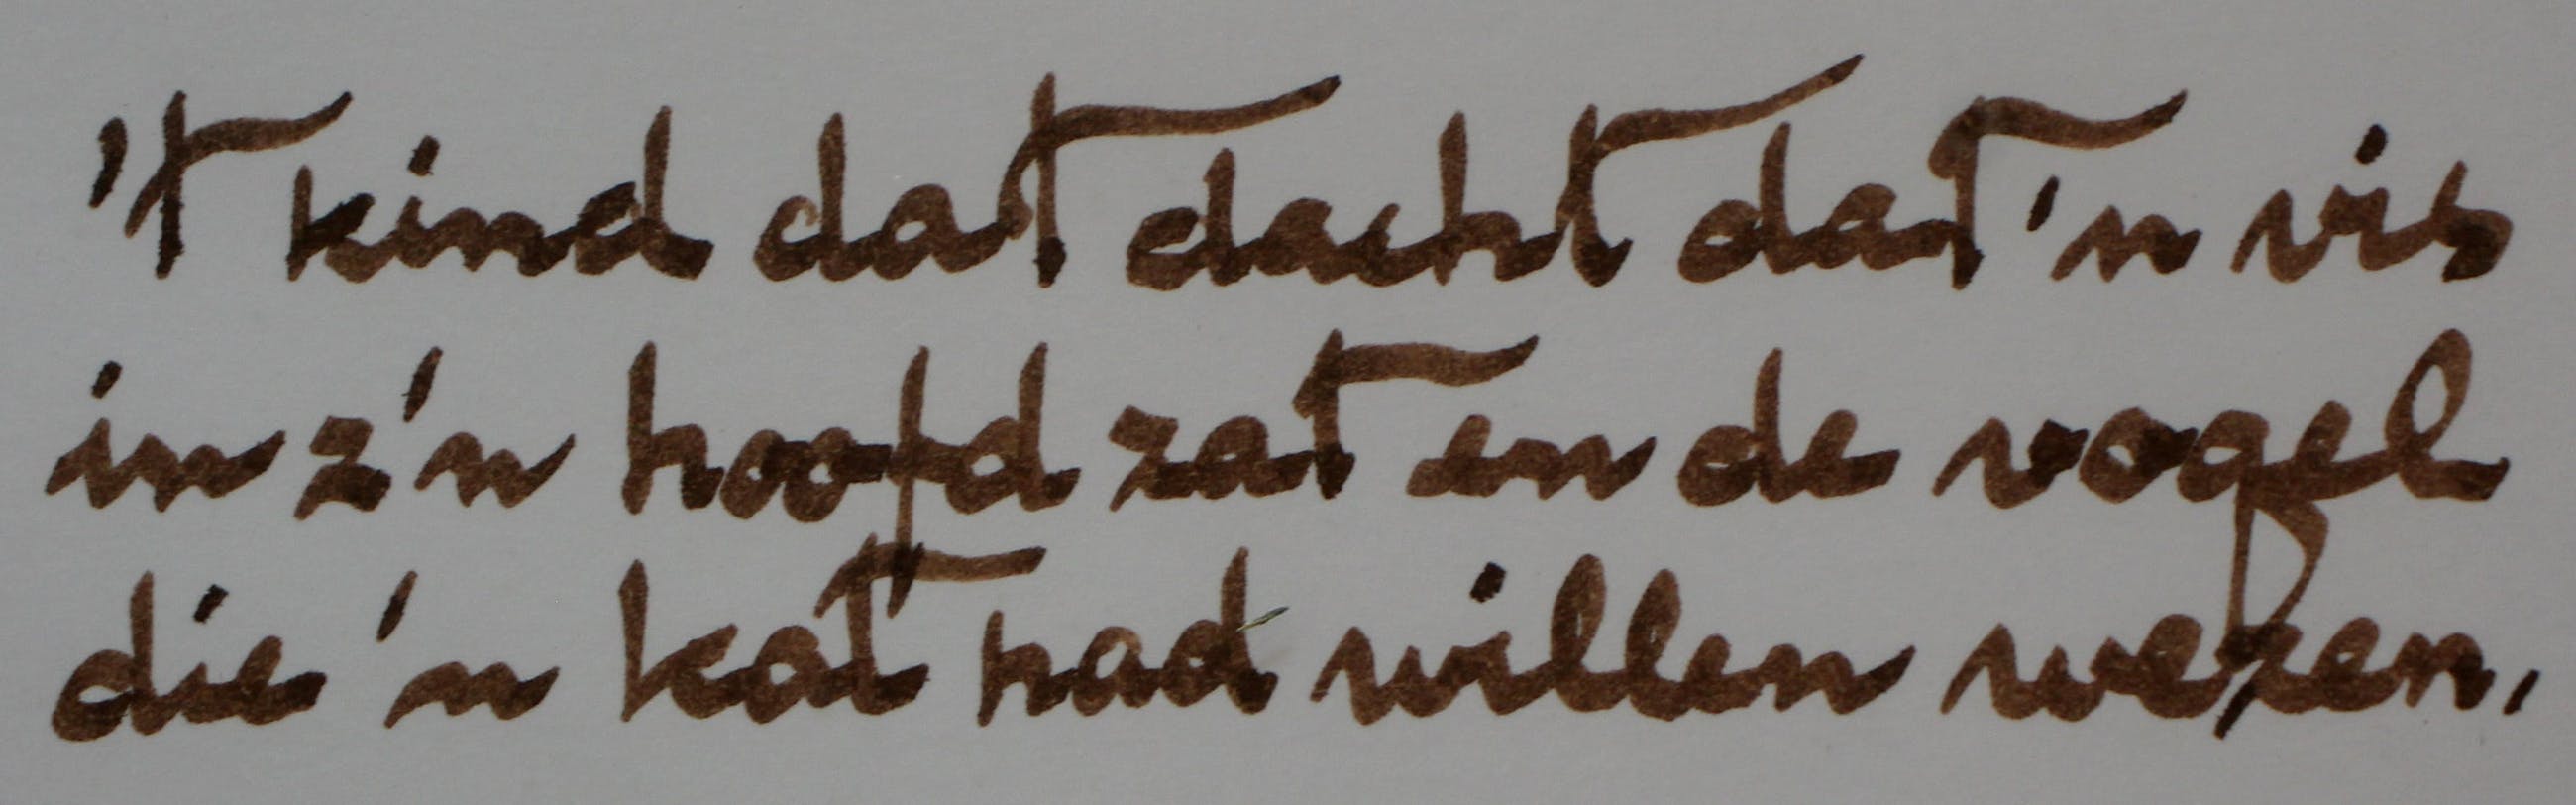 't kind dat dacht dat 'n vis
in z'n hoofd zat en de vogel
die 'n kat had willen wezen,